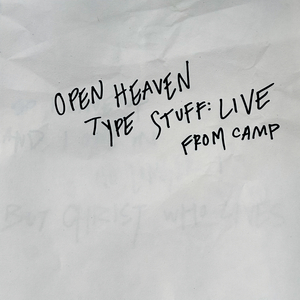 OPEN HEAVEN
TYPE STUFF: LIVE
FROM CAMP
BUT CHRIST WHO LIVES